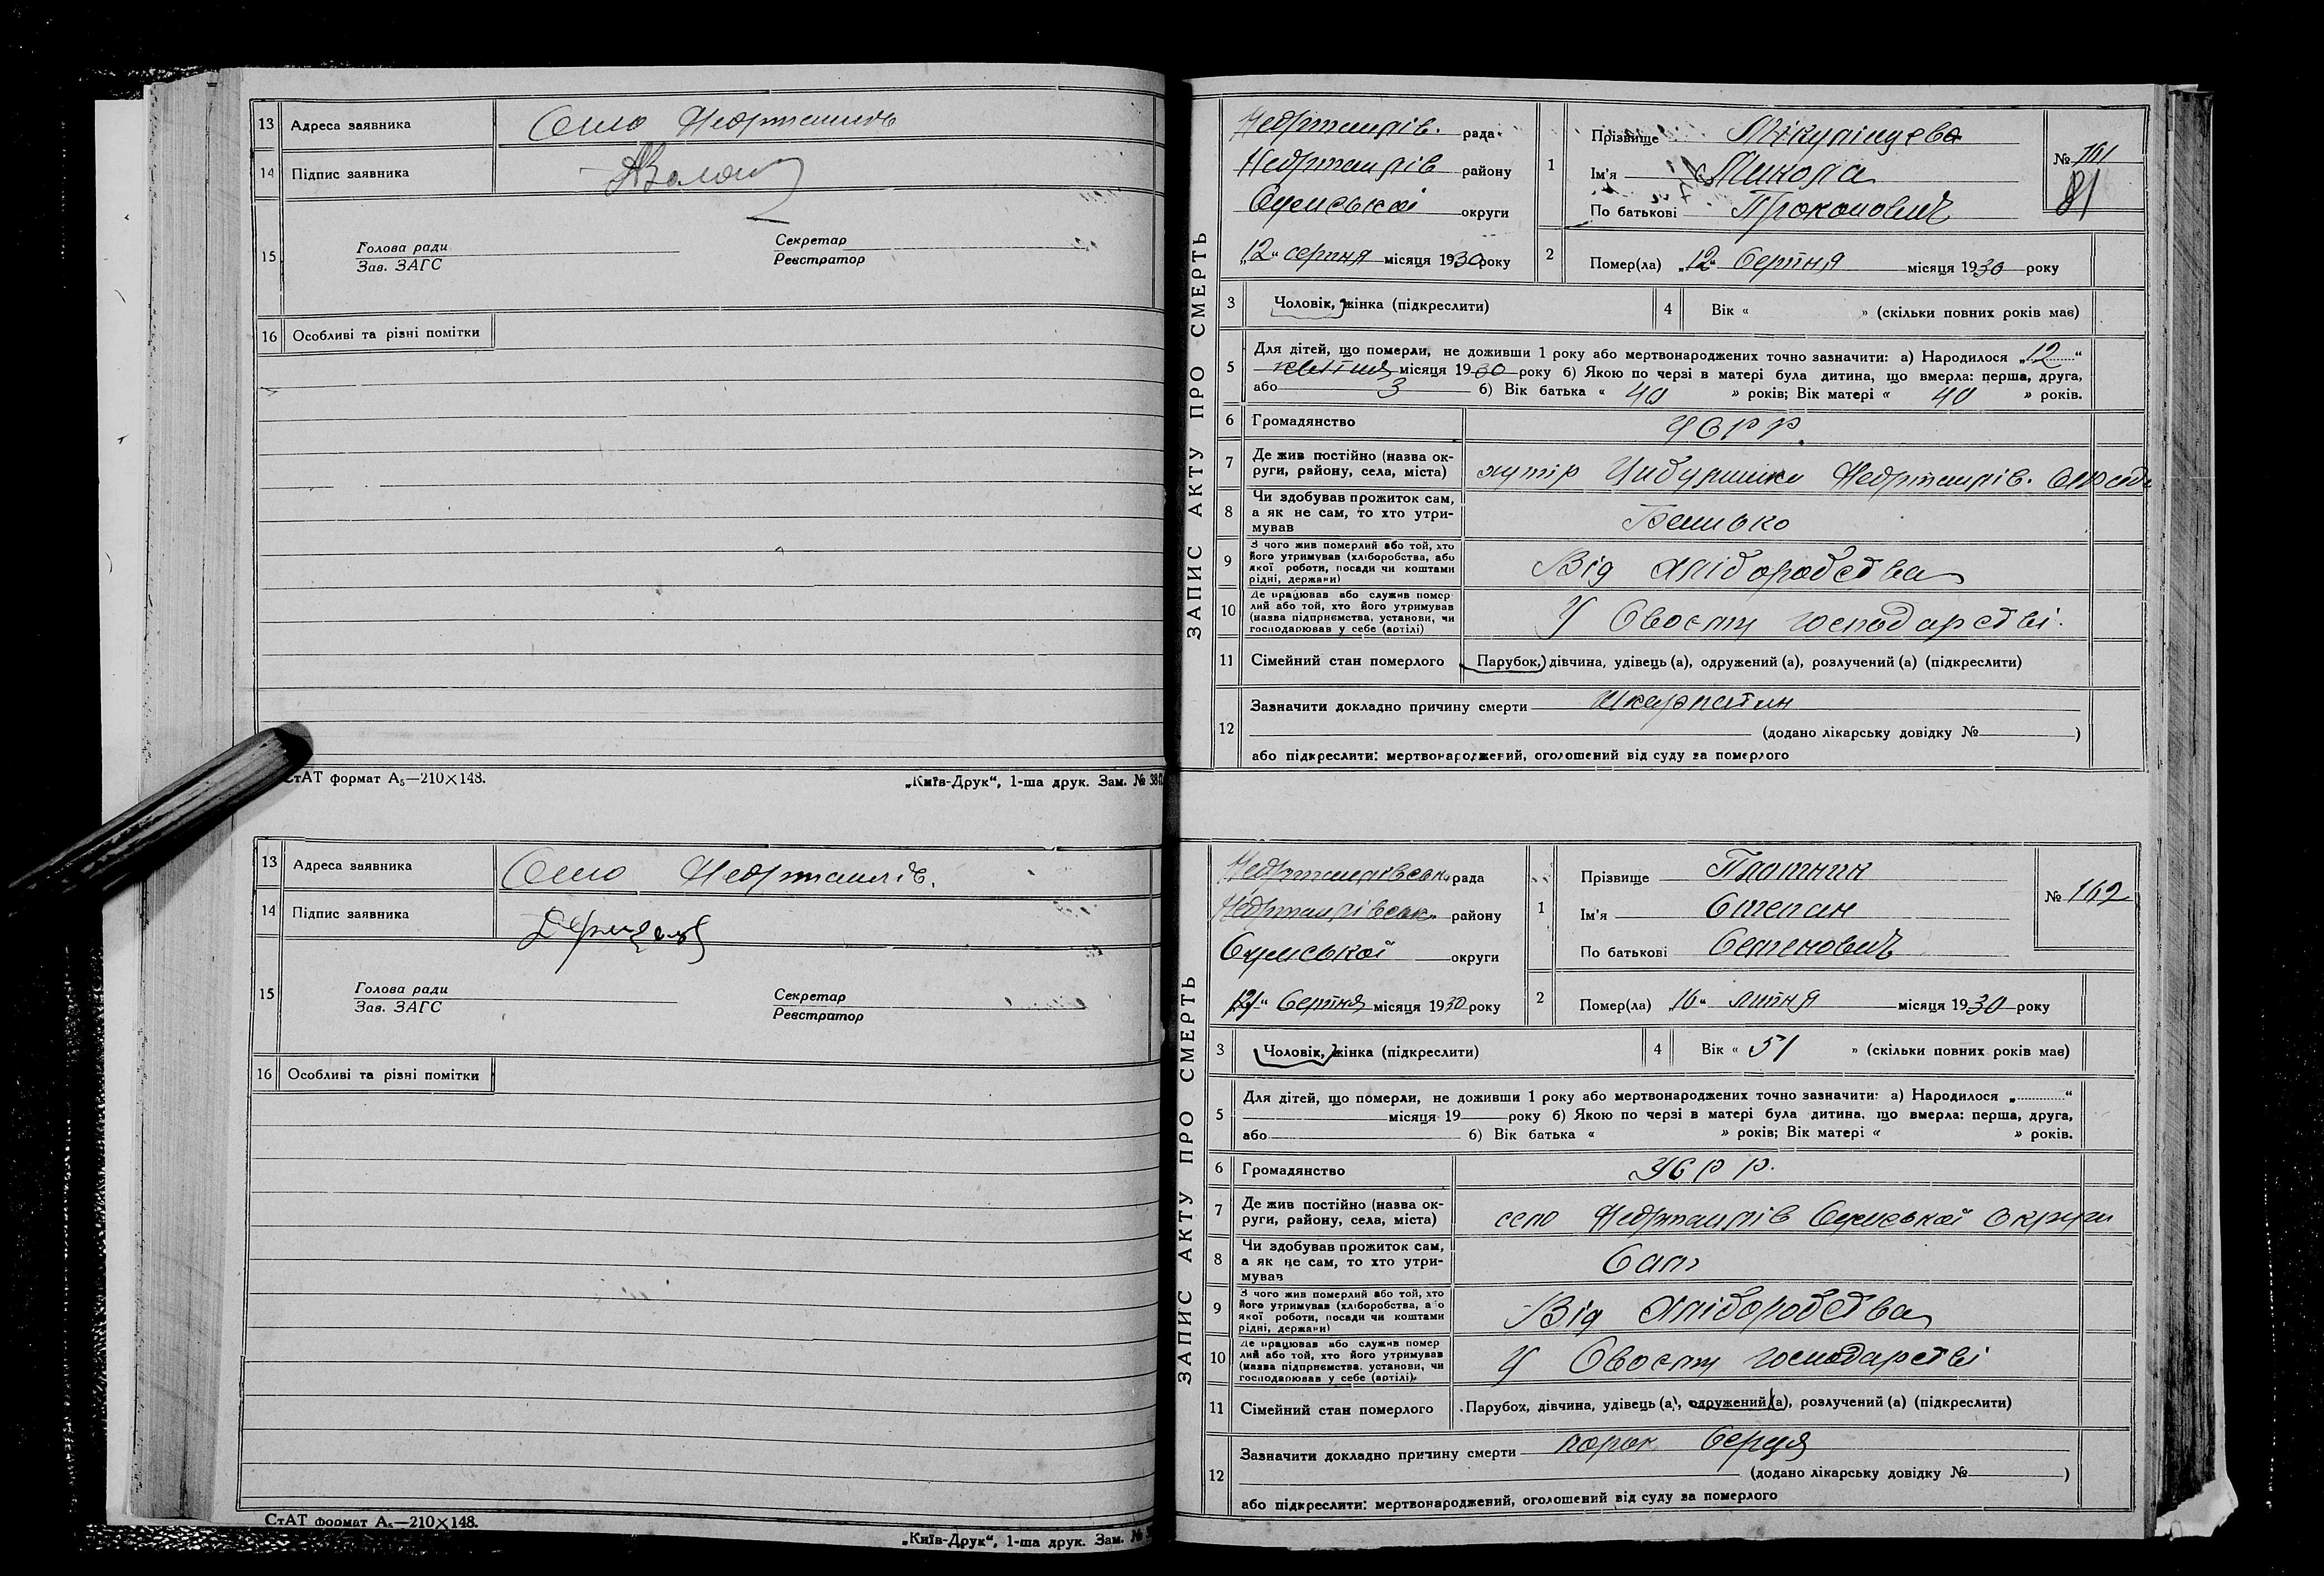 13 Адреса заявника Село Недригайлів
14 Підпис заявника
15 Голова ради
Зав. ЗАГС
Секретар
Реєстратор
16 Особливі та різні помітки
СтАТ формат А₅—210×148.
„Київ-Друк“, 1-ша друк. Зам. № 38
13 Адреса заявника Село Недригайлів.
14 Підпис заявника
15 Голова ради
Зав. ЗАГС
Секретар
Реєстратор
16 Особливі та різні помітки
СтАТ формат А₅—210×148.
„Київ-Друк“, 1-ша друк. Зам. №
ЗАПИС АКТУ ПРО СМЕРТЬ
Недригайлів. рада
Недригайлів району
Сумської округи
„12“ серпня місяця 1930 року
1 Прізвище
Ім'я Микола
По батькові Прокопович
№ 161
81
2 Помер(ла) „12“ Серпня місяця 1930 року
3 Чоловік, жінка (підкреслити)
4 Вік « » (скільки повних років має)
5 Для дітей, що померли, не доживши 1 року або мертвонароджених точно зазначити: а) Народилося „12“
квітня місяця 1930 року б) Якою по черзі в матері була дитина, що вмерла: перша, друга,
або 3 б) Вік батька « 40 » років; Вік матері « 40 » років.
6 Громадянство УСРР.
7 Де жив постійно (назва округи, району, села, міста) хутір Недригайлів.
8 Чи здобував прожиток сам,
а як не сам, то хто утри-
мував Батько
9 З чого жив померлий або той, хто
його утримував (хліборобства, або
якої роботи, посади чи коштами
рідні, держави) Від хліборобства
10 Де працював або служив помер-
лий або той, хто його утримував
(назва підприємства, установи, чи
господарював у себе (артілі) У Своєму господарстві.
11 Сімейний стан померлого Парубок, дівчина, удівець (а), одружений (а), розлучений (а) (підкреслити)
12 Зазначити докладно причину смерти шкарлатин
(додано лікарську довідку № )
або підкреслити: мертвонароджений, оголошений від суду за померлого
ЗАПИС АКТУ ПРО СМЕРТЬ
Недригайлівськ. рада
Недригайлівськ. району
Сумської округи
„12“ Серпня місяця 1930 року
1 Прізвище Плотник
Ім'я Степан
По батькові Семенович
№ 162
2 Помер(ла) „16“ липня місяця 1930 року
3 Чоловік, жінка (підкреслити)
4 Вік « 51 » (скільки повних років має)
5 Для дітей, що померли, не доживши 1 року або мертвонароджених точно зазначити: а) Народилося „ “
місяця 19 року б) Якою по черзі в матері була дитина, що вмерла: перша, друга,
або б) Вік батька « » років; Вік матері « » років.
6 Громадянство УСРР.
7 Де жив постійно (назва ок-
руги, району, села, міста) село Недригайлів Сумської округи
8 Чи здобував прожиток сам,
а як не сам, то хто утри-
мував Сам
9 З чого жив померлий або той, хто
його утримував (хліборобства, або
якої роботи, посади чи коштами
рідні, держави) Від хліборобства
10 Де працював або служив помер-
лий або той, хто його утримував
(назва підприємства, установи, чи
господарював у себе (артілі). У Своєму господарстві
11 Сімейний стан померлого Парубок, дівчина, удівець (а), одружений (а), розлучений (а) (підкреслити)
12 Зазначити докладно причину смерти порок Серця
(додано лікарську довідку № )
або підкреслити: мертвонароджений, оголошений від суду за померлого